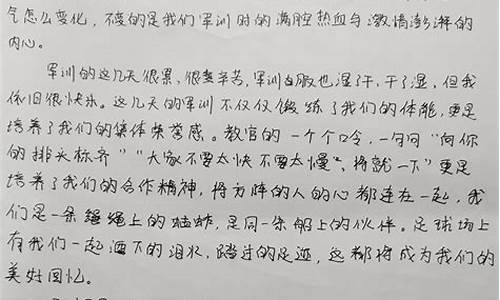 气怎么变化，不变的是我们军训时的满腔热血与激情澎湃的
内心。
军训的这几天很累，很辛苦，军训服也湿了干，干了湿，但我
依旧很快乐。这几天的军训不仅仅锻炼了我们的体能，更是
培养了我们的集体荣誉感。教官的一个个口令，一句句“向你
的排头标齐”“大家不要太快不要太慢”、将就一下”更是
培养了我们的合作精神，将方阵的人的心都连在一起，我
们是一条绳上的蚂蚱，是同一条船上的伙伴。足球场上
有我们一起洒下的泪水，踏过的足迹，这都将成为我们的
美好回忆。